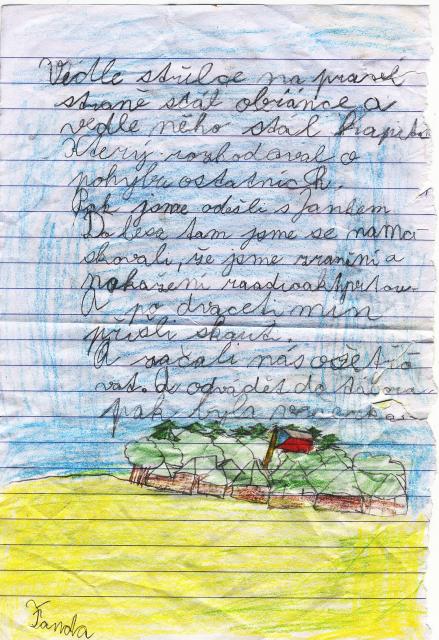 Vedle střelce na pravé
straně stál obránce a
vedle něho stál kapitá
Který rozhodoval o
pohybu ostatních.
Pak jsme odešli s Jankem
Do lesa tam jsme se nama
skovali, že jsme zranění a
nakažení
A po dvaceti min
přišli skauti.
A začali nás ošetřo
vat. A odvádět do tábora
pak byla
Fanda